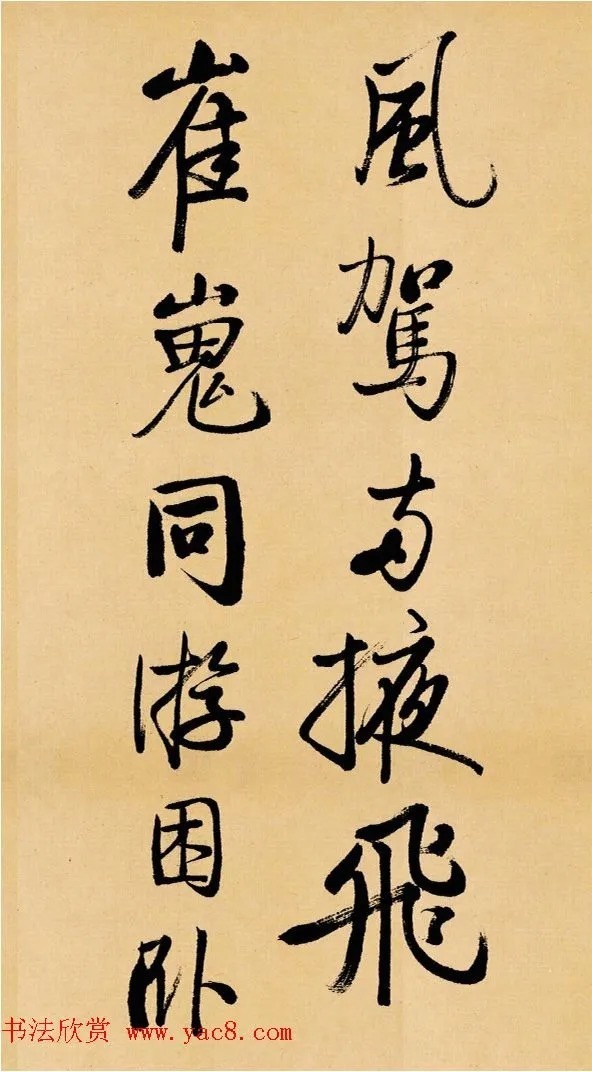 風駕兩掖飛
崔嵬同游困卧
书法欣赏 www.yac8.com